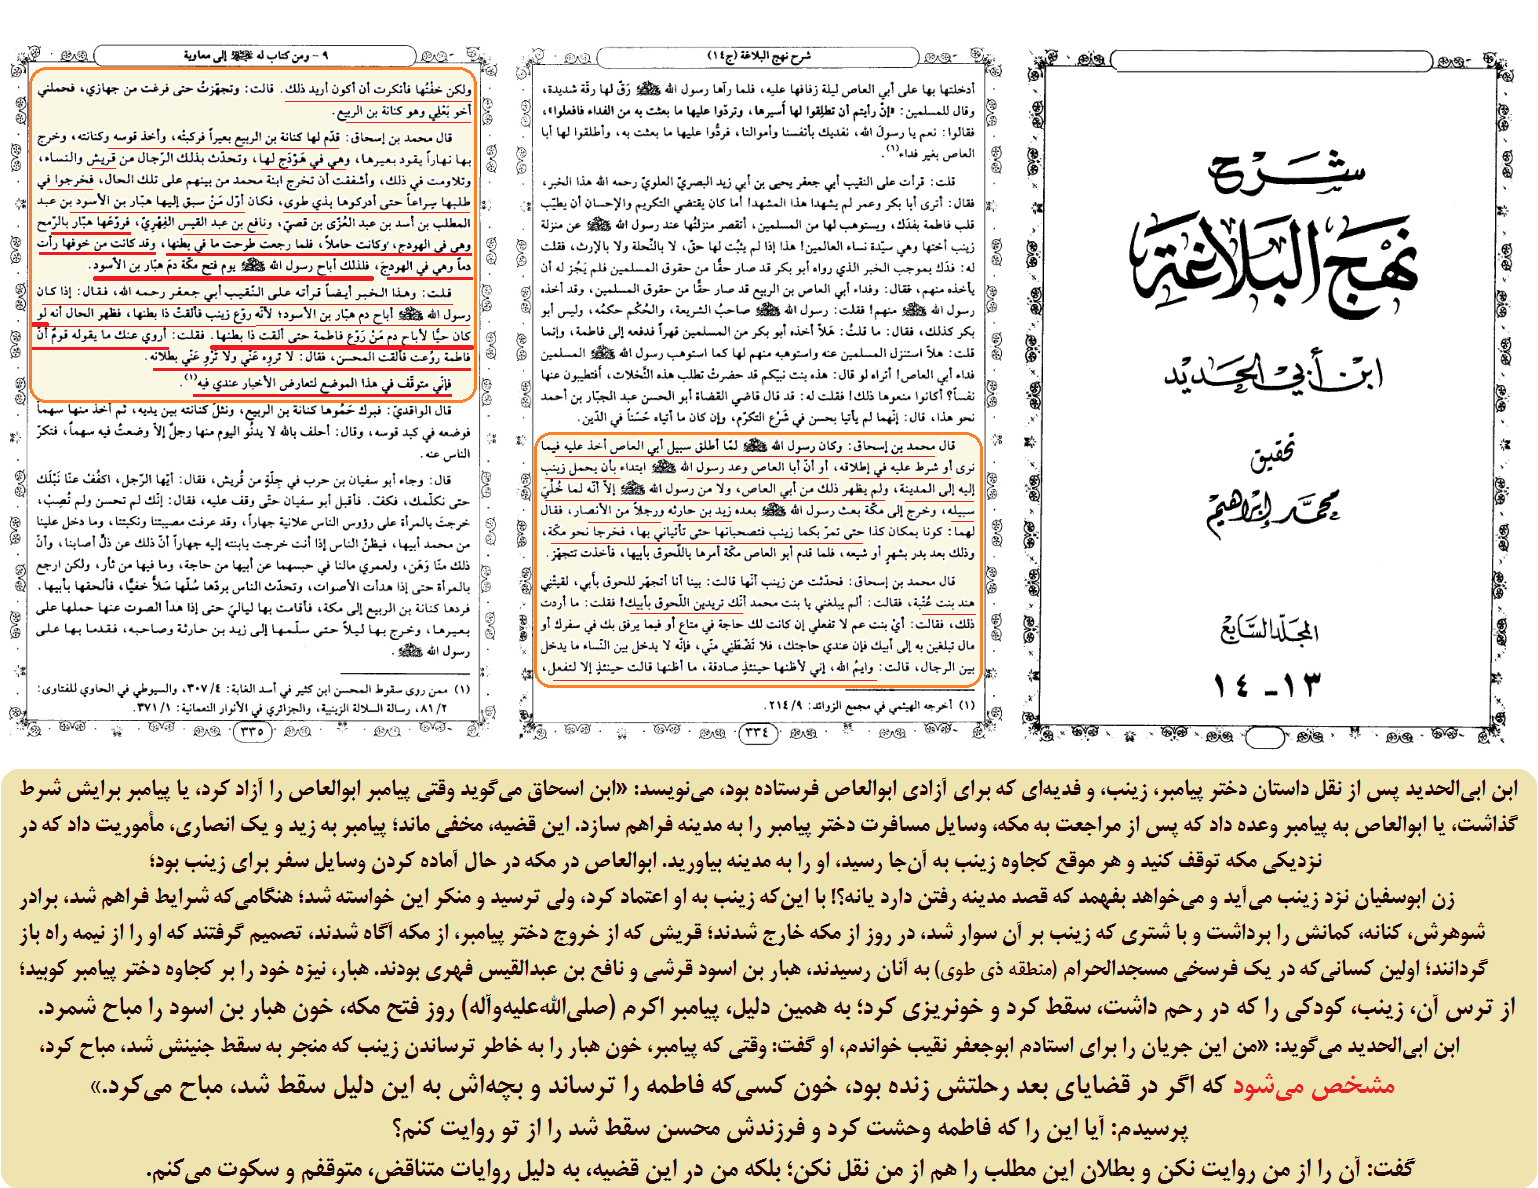 شرح
نهج البلاغة
ابن أبي الحديد
تحقيق
محمد إبراهيم
المجلد السابع
١٣ - ١٤
شرح نهج البلاغة (ج١٤)
أدخلتها بها على أبي العاص ليلة زفافها عليه، فلما رآها رسول الله ﷺ رَقّ لها رقّة شديدة،
وقال للمسلمين: «إنْ رأيتم أن تطلِقوا لها أسيرها، وتردّوا عليها ما بعثت به من الفداء فافعلوا»،
فقالوا: نعم يا رسولَ الله، نفديك بأنفسنا وأموالنا، فردُّوا عليها ما بعثت به، وأطلقوا لها أبا
العاص بغير فداء(١).
قلت: قرأت على النقيب أبي جعفر يحيى بن أبي زيد البصريّ العلويّ رحمه الله هذا الخبر،
فقال: أترى أبا بكر وعمر لم يشهدا هذا المشهد! أما كان يقتضي التكريم والإحسان أن يطيّب
قلب فاطمة بفدَك، ويستوهب لها من المسلمين، أتقصر منزلتُها عند رسول الله ﷺ عن منزلة
زينب أختها وهي سيّدة نساء العالمين! هذا إذا لم يثبُت لها حقّ، لا بالنِّحلة ولا بالإرث، فقلت
له: فدَك بموجب الخبر الذي رواه أبو بكر قد صار حقًّا من حقوق المسلمين فلم يَجُز له أن
يأخذه منهم، فقال: وفداء أبي العاص بن الربيع قد صار حقًّا من حقوق المسلمين، وقد أخذه
رسول الله ﷺ منهم! فقلت: رسول الله ﷺ صاحبُ الشريعة، والحُكْم حكمُه، وليس أبو
بكر كذلك، فقال: ما قلتُ: هَلاّ أخذه أبو بكر من المسلمين قهراً فدفعه إلى فاطمة، وإنما
قلت: هلاّ استنزل المسلمين عنه واستوهبه منهم لها كما استوهب رسول الله ﷺ المسلمين
فداء أبي العاص! أتراه لو قال: هذه بنت نبيّكم قد حضرتْ تطلب هذه النَّخلات، أفتطيبون عنها
نفساً؟ أكانوا منعوها ذلك! فقلت له: قد قال قاضي القضاة أبو الحسن عبد الجبّار بن أحمد
نحو هذا، قال: إنّهما لم يأتيا بحسن في شَرْع التكرّم، وإن كان ما أتياه حَسَناً في الدّين.
قال محمد بن إسحاق: وكان رسول الله ﷺ لمّا أطلق سبيل أبي العاص أخذ عليه فيما
نرى أو شرط عليه في إطلاقه، أو أنّ أبا العاص وعد رسول الله ﷺ ابتداء بأن يحمل زينب
إليه إلى المدينة، ولم يظهر ذلك من أبي العاص، ولا من رسول الله ﷺ إلاّ أنّه لما خُلِّيَ
سبيله، وخرج إلى مكّة بعث رسول الله ﷺ بعده زيد بن حارثة ورجلاً من الأنصار، فقال
لهما: كونا بمكان كذا حتى تمرّ بكما زينب فتصحبانها حتى تأتياني بها، فخرجا نحو مكّة،
وذلك بعد بدر بشهرٍ أو شيعه، فلما قدم أبو العاص مكّة أمرها باللّحوق بأبيها، فأخذت تتجهّز.
قال محمد بن إسحاق: فحدّثت عن زينب أنّها قالت: بينا أنا أتجهّز للحوق بأبي، لقيتْني
هند بنت عُتْبة، فقالت: ألم يبلغني يا بنت محمد أنّك تريدين اللّحوق بأبيك! فقلت: ما أردت
ذلك، فقالت: أيْ بنت عم لا تفعلي إن كانت لك حاجة في متاع أو فيما يرفق بك في سفرك أو
مال تبلغين به إلى أبيك فإن عندي حاجتك، فلا تَضْطَني منّي، فإنّه لا يدخل بين النّساء ما يدخل
بين الرجال، قالت: وايمُ الله، إني لأظنها حينئذٍ صادقة، ما أظنها قالت حينئذٍ إلا لتفعل،
(١) أخرجه الهيثمي في مجمع الزوائد: ٩/ ٢١٤.
٣٣٤
٩ - ومن كتاب له ﷺ إلى معاوية
ولكن خفْتُها فأنكرت أن أكون أريد ذلك. قالت: وتجهّزتُ حتى فرغت من جهازي، فحملني
أخو بَعْلي وهو كنانة بن الربيع.
قال محمد بن إسحاق: قدّم لها كنانة بن الربيع بعيراً فركبتْه، وأخذ قوسه وكنانته، وخرج
بها نهاراً يقود بعيرها، وهي في هَوْدَج لها، وتحدّث بذلك الرّجال من قريش والنساء،
وتلاومت في ذلك، وأشفقت أن تخرج ابنة محمد من بينهم على تلك الحال، فخرجوا في
طلبها سِراعاً حتى أدركوها بذي طوى، فكان أوّل مَنْ سبق إليها هبّار بن الأسود بن عبد
المطلب بن أسد بن عبد العُزّى بن قصيّ، ونافع بن عبد القيس الفِهْرِيّ، فروّعها هبّار بالرّمح
وهي في الهودج، وكانت حاملاً، فلما رجعت طرحت ما في بطنها، وقد كانت من خوفها رأت
دماً وهي في الهودج، فلذلك أباح رسول الله ﷺ يوم فتح مكّة دمَ هبّار بن الأسود.
قلت: وهذا الخبر أيضاً قرأته على النَّقيب أبي جعفر رحمه الله، فقال: إذا كان
رسول الله ﷺ أباح دم هبّار بن الأسود؛ لأنّه روّع زينب فألقتْ ذا بطنها، فظهر الحال أنه لو
كان حيًّا لأباح دم مَنْ رَوّع فاطمة حتى ألقت ذا بطنها. فقلت: أروي عنك ما يقوله قومٌ أنّ
فاطمة روُعت فألقت المحسن، فقال: لا تروِه عَنّي ولا تَرْوِ عَنّي بطلانَه.
فإنّي متوقّف في هذا الموضع لتعارض الأخبار عندي فيه(١).
قال الواقديّ: فبرك حَمُوها كنانة بن الربيع، ونثلَ كنانته بين يديه، ثم أخذ منها سهماً
فوضعه في كبد قوسه، وقال: أحلف بالله لا يدنُو اليوم منها رجلٌ إلاّ وضعتُ فيه سهماً، فتكرّ
الناس عنه.
قال: وجاء أبو سفيان بن حرب في جِلّةٍ من قُريش، فقال: أيّها الرّجل، اكفُفْ عنّا نَبْلَك
حتى نكلّمك، فكفّ. فأقبل أبو سفيان حتّى وقف عليه، فقال: إنّك لم تحسن ولم تُصِبْ،
خرجتَ بالمرأة على رؤوس الناس علانية جهاراً، وقد عرفت مصيبتنا ونكبتنا، وما دخل علينا
من محمد أبيها، فيظنّ الناس إذا أنت خرجت بابنته إليه جهاراً أنّ ذلك عن ذلّ أصابنا، وأنّ
ذلك منّا وَهَن، ولعمري مالنا في حبسهما عن أبيها من حاجة، وما فيها من ثأر، ولكن ارجع
بالمرأة حتى إذا هدأت الأصوات، وتحدّث الناس بردّها سُلّها سَلاًّ خفيًّا، فألحقها بأبيها.
فردها كنانة بن الربيع إلى مكة، فأقامت بها لياليَ حتى إذا هدأ الصوت عنها حملها على
بعيرها، وخرج بها ليلاً حتى سلّمها إلى زيد بن حارثة وصاحبه، فقدما بها على
رسول الله ﷺ.
(١) ممن روى سقوط المحسن ابن كثير في أسد الغابة: ٤/ ٣٠٧، والسيوطي في الحاوي للفتاوى:
٢/ ٨١، رسالة السلالة الزينبية، والجزائري في الأنوار النعمانية: ١/ ٣٧١.
٣٣٥
ابن ابی‌الحدید پس از نقل داستان دختر پیامبر، زینب، و فدیه‌ای که برای آزادی ابوالعاص فرستاده بود، می‌نویسد: «ابن اسحاق می‌گوید وقتی پیامبر ابوالعاص را آزاد کرد، یا پیامبر برایش شرط
گذاشت، یا ابوالعاص به پیامبر وعده داد که پس از مراجعت به مکه، وسایل مسافرت دختر پیامبر را به مدینه فراهم سازد. این قضیه، مخفی ماند؛ پیامبر به زید و یک انصاری، مأموریت داد که در
نزدیکی مکه توقف کنید و هر موقع کجاوه زینب به آن‌جا رسید، او را به مدینه بیاورید. ابوالعاص در مکه در حال آماده کردن وسایل سفر برای زینب بود؛
زن ابوسفیان نزد زینب می‌آید و می‌خواهد بفهمد که قصد مدینه رفتن دارد یانه؟! با این‌که زینب به او اعتماد کرد، ولی ترسید و منکر این خواسته شد؛ هنگامی‌که شرایط فراهم شد، برادر
شوهرش، کنانه، کمانش را برداشت و با شتری که زینب بر آن سوار شد، در روز از مکه خارج شدند؛ قریش که از خروج دختر پیامبر، از مکه آگاه شدند، تصمیم گرفتند که او را از نیمه راه باز
گردانند؛ اولین کسانی‌که در یک فرسخی مسجدالحرام (منطقه ذی طوی) به آنان رسیدند، هبار بن اسود قرشی و نافع بن عبدالقیس فهری بودند. هبار، نیزه خود را بر کجاوه دختر پیامبر کوبید؛
از ترس آن، زینب، کودکی را که در رحم داشت، سقط کرد و خونریزی کرد؛ به همین دلیل، پیامبر اکرم (صلی‌الله‌علیه‌وآله) روز فتح مکه، خون هبار بن اسود را مباح شمرد.
ابن ابی‌الحدید می‌گوید: «من این جریان را برای استادم ابوجعفر نقیب خواندم، او گفت: وقتی که پیامبر، خون هبار را به خاطر ترساندن زینب که منجر به سقط جنینش شد، مباح کرد،
مشخص می‌شود که اگر در قضایای بعد رحلتش زنده بود، خون کسی‌که فاطمه را ترساند و بچه‌اش به این دلیل سقط شد، مباح می‌کرد.»
پرسیدم: آیا این را که فاطمه وحشت کرد و فرزندش محسن سقط شد را از تو روایت کنم؟
گفت: آن را از من روایت نکن و بطلان این مطلب را هم از من نقل نکن؛ بلکه من در این قضیه، به دلیل روایات متناقض، متوقفم و سکوت می‌کنم.